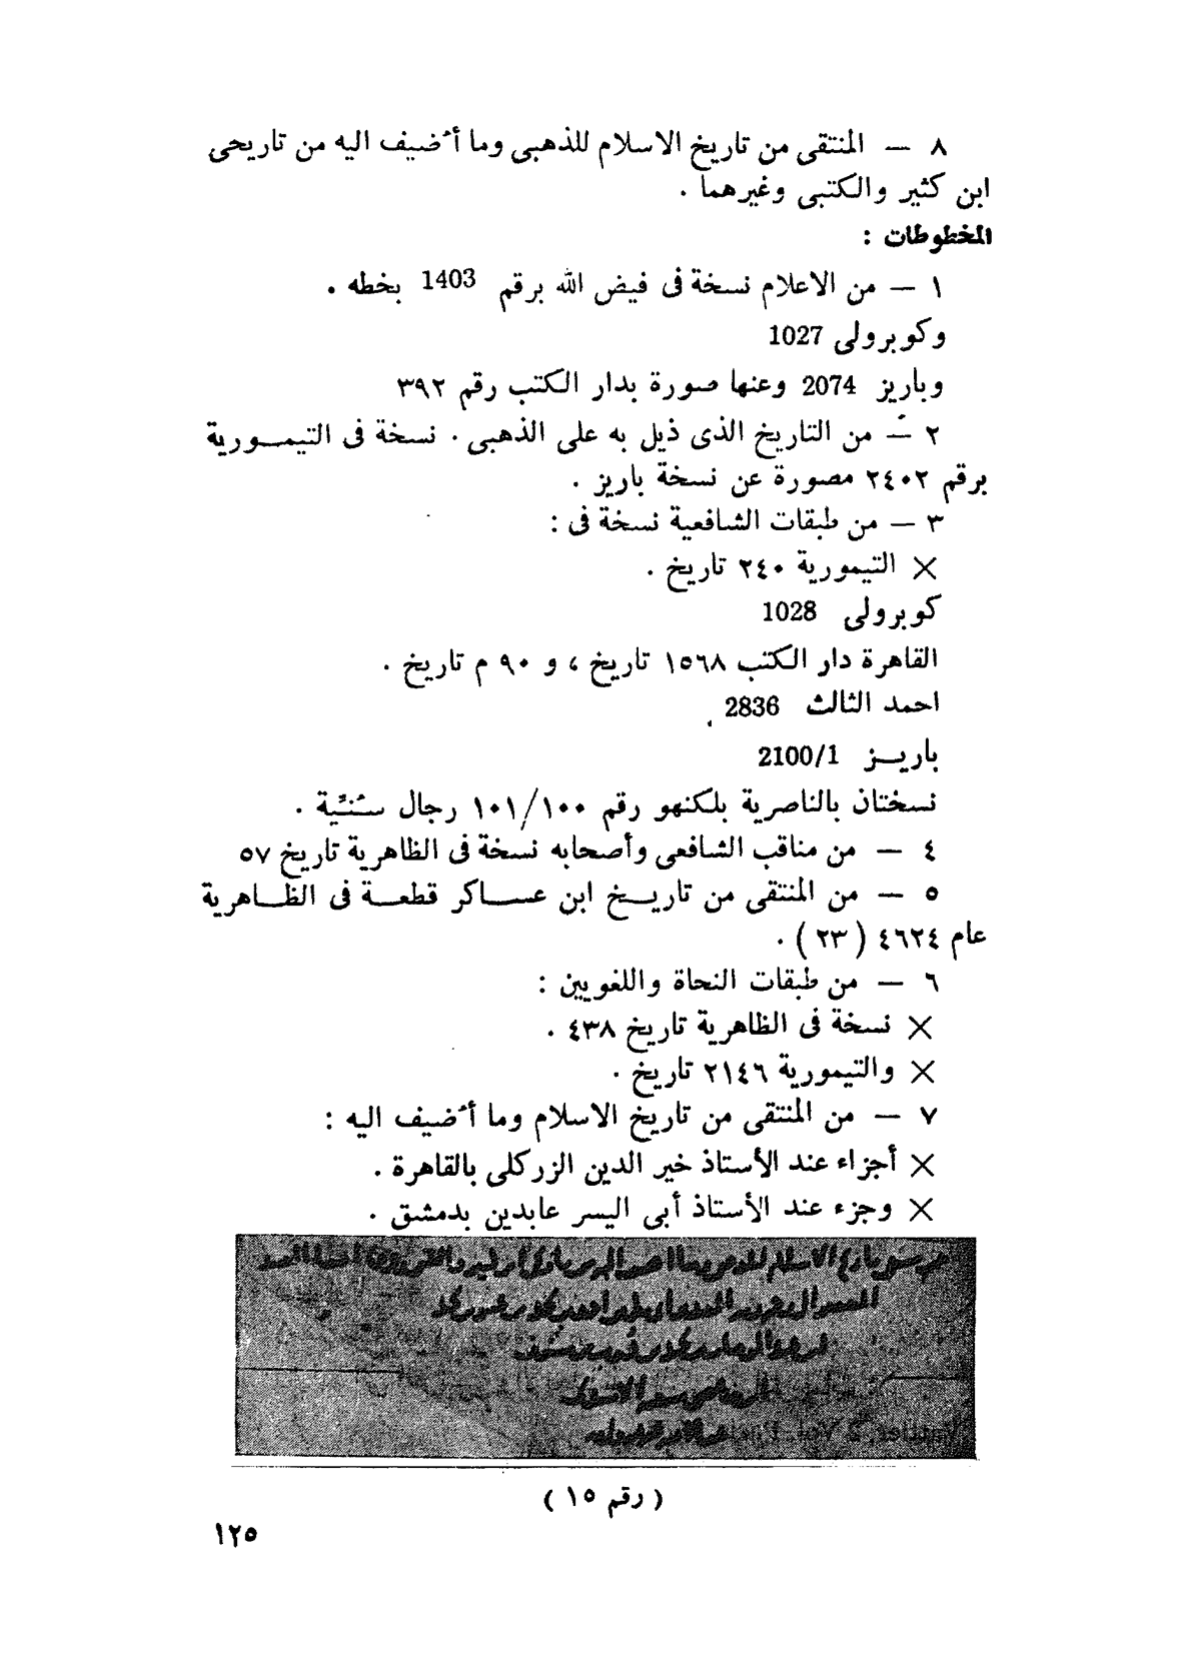 ٨ — المنتقى من تاريخ الاسلام للذهبى وما أُضيف اليه من تاريحى
ابن كثير والكتبى وغيرهما .
المخطوطات :
١ — من الاعلام نسخة فى فيض الله برقم 1403 بخطه .
وكوبرولى 1027
وباريز 2074 وعنها صورة بدار الكتب رقم ٣٩٢
٢ — من التاريخ الذى ذيل به على الذهبى . نسخة فى التيمـــورية
برقم ٢٤٠٢ مصورة عن نسخة باريز .
٣ — من طبقات الشافعية نسخة فى :
× التيمورية ٢٤٠ تاريخ .
كوبرولى 1028
القاهرة دار الكتب ١٥٦٨ تاريخ ، و ٩٠ م تاريخ .
احمد الثالث 2836
باريـــز 2100/1
نسختان بالناصرية بلكنهو رقم ١٠١/١٠٠ رجال سُنيَّة .
٤ — من مناقب الشافعى وأصحابه نسخة فى الظاهرية تاريخ ٥٧
٥ — من المنتقى من تاريـــخ ابن عســـاكر قطعـــة فى الظـــاهرية
عام ٤٦٢٤ ( ٢٣ ) .
٦ — من طبقات النحاة واللغويين :
× نسخة فى الظاهرية تاريخ ٤٣٨ .
× والتيمورية ٢١٤٦ تاريخ .
٧ — من المنتقى من تاريخ الاسلام وما أُضيف اليه :
× أجزاء عند الأستاذ خير الدين الزركلى بالقاهرة .
× وجزء عند الأستاذ أبى اليسر عابدين بدمشق .
( رقم ١٥ )
١٢٥